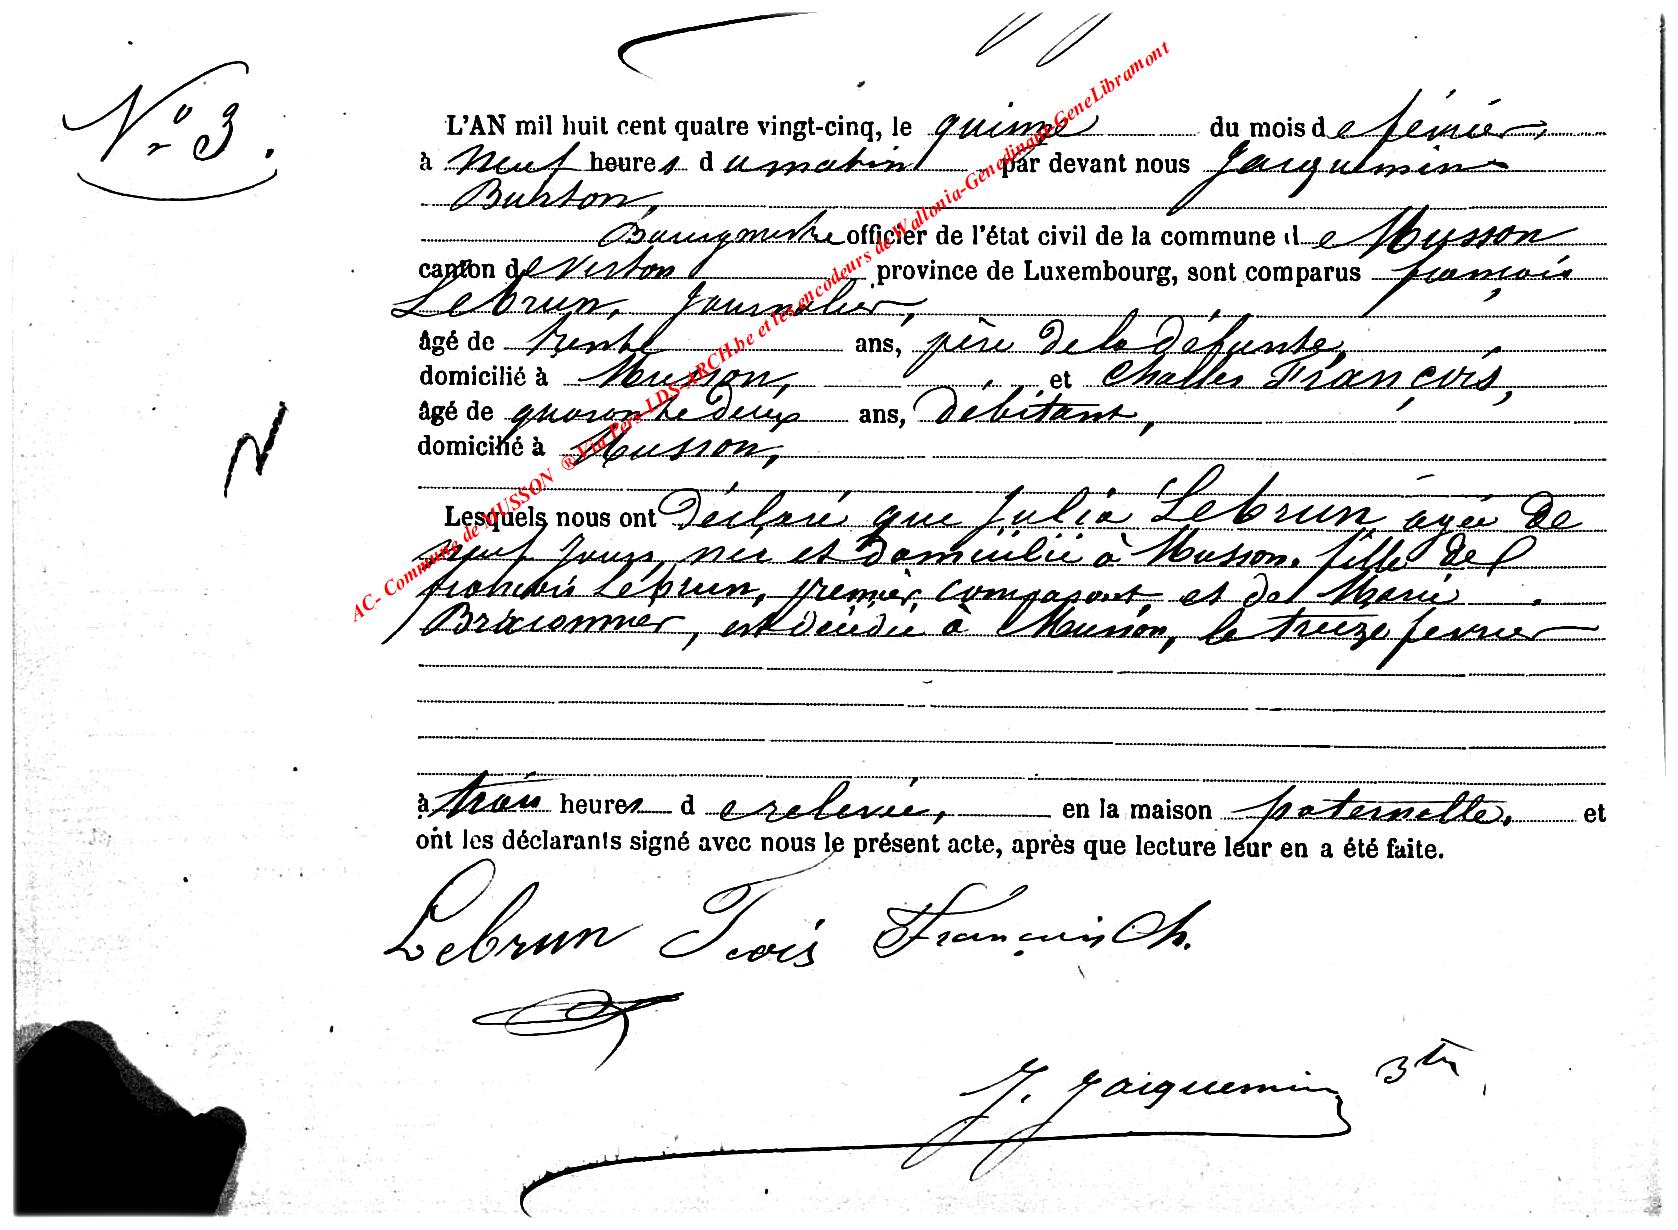 N° 3.
L'AN mil huit cent quatre vingt-cinq, le quinze du mois de février,
à neuf heures du matin par devant nous Jacquemin
Burton,
Bourgmestre officier de l'état civil de la commune de Musson
canton de Virton province de Luxembourg, sont comparus françois
Lebrun, Journalier,
âgé de trente ans, père de la défunte,
domicilié à Musson, et Charles François,
âgé de quarante deux ans, Débitant,
domicilié à Musson,
Lesquels nous ont Déclaré que Julia Lebrun agée de
neuf jours, née et domiciliée à Musson, fille de
françois Lebrun, premier comparant et de Marie
, est décédée à Musson, le treize fevrier
à trois heures de relevée, en la maison paternelle, et
ont les déclarants signé avec nous le présent acte, après que lecture leur en a été faite.
Lebrun Fcois François Ch.
J. Jacquemin
AC- Commune de MUSSON ® Via Pers LDS-ARCH.be et les encodeurs de Wallonia-Genedinant-GeneLibramont